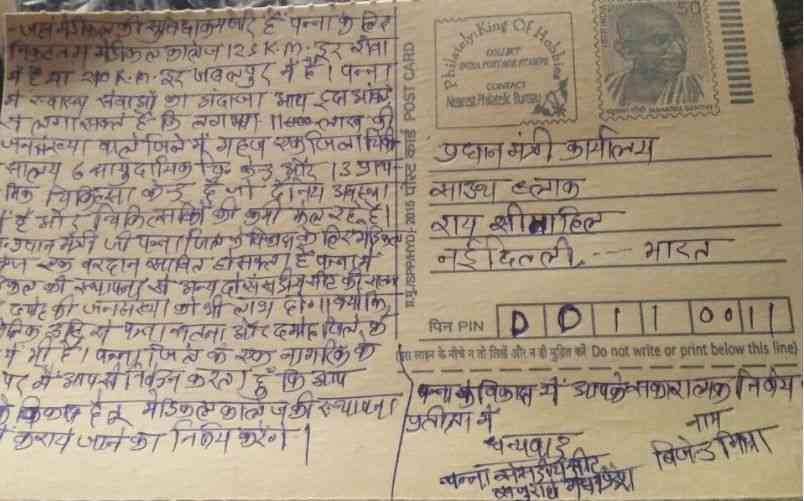 जहां मेडिकल की सुविधा कमजोर है पन्ना के लिए
निकटतम मेडिकल कालेज 125 K.M. दूर रीवा
में है या 240 K.M. दूर जबलपुर में है। पन्ना
में स्वास्थ्य सेवाओं का अंदाजा आप इस आंकड़े
से लगा सकते है कि लगभग लाख की
जनसंख्या वाले जिले में महज एक जिला चिकि
त्सालय 6 सामुदायिक केन्द्र और 13 प्राथ-
मिक चिकित्सा केन्द्र है जो दैनिय अवस्था
में है और चिकित्सकों की कमी झेल रहे है।
प्रधान मंत्री जी पन्ना जिले के विकास के लिए मेडिकल
एक वरदान साबित हो सकता है पन्ना में
की स्थापना से अन्य दो संसदीय सीट
दमोह की जनसंख्या को भी लाभ होगा क्योंकि
से पन्ना सतना और दमोह जिले के
में भी है। पन्ना जिले के एक नागरिक के
पर मैं आपसे निवेदन करता हूँ कि आप
के विकास हेतु मेडिकल कालेज की स्थापना
कराये जाने का निर्णय करेंगे।
Philately, King Of Hobbies
COLLECT
INDIA POSTAGE STAMPS
CONTACT
Nearest Philatelic Bureau
50
MAHATMA GANDHI
2015 पोस्ट कार्ड POST CARD
प्रधान मंत्री कार्यालय
साउथ ब्लाक
राय शीनाहिल
नई दिल्ली, --- भारत
पिन PIN 0 0 1 1 00 11
(इस लाइन के नीचे न तो लिखें और न ही मुद्रित करें Do not write or print below this line)
पन्ना के विकास में आपके सकारात्मक निर्णय
प्रतीक्षा में
धन्यवाद
नाम
पन्ना संसदीय सीट
खजुराहो मध्यप्रदेश